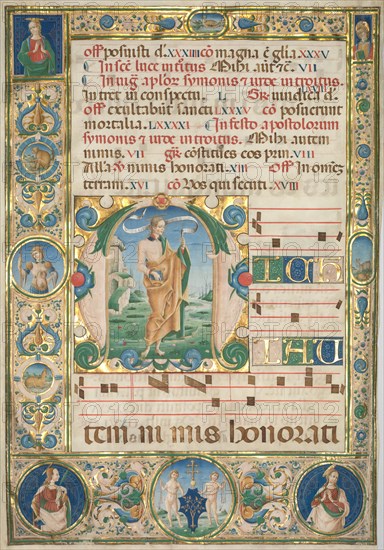 off posuisti d. XXXIIII cō magna ē gl̄a. XXXV
In sc̄e luce inͭtus Mihi aut̄. VII
In uig̃ aplor̄ symonis ⁊ iude introitus.
Intret in conspectu. L Gr̄ uindica d.
off exultabūt sancti LXXV cō posuerunt
mortalia. LXXXXI In festo apostolorum
symonis ⁊ iude introitus. Mihi autem
nimis. VII gr̄ cōstitues eos prin. VIII
Alla. nimis honorati. XIII off In omnē
terram. XVI cō Vos qui secuti. XVIII
M
ICH
I AU
tem ni mis honorati